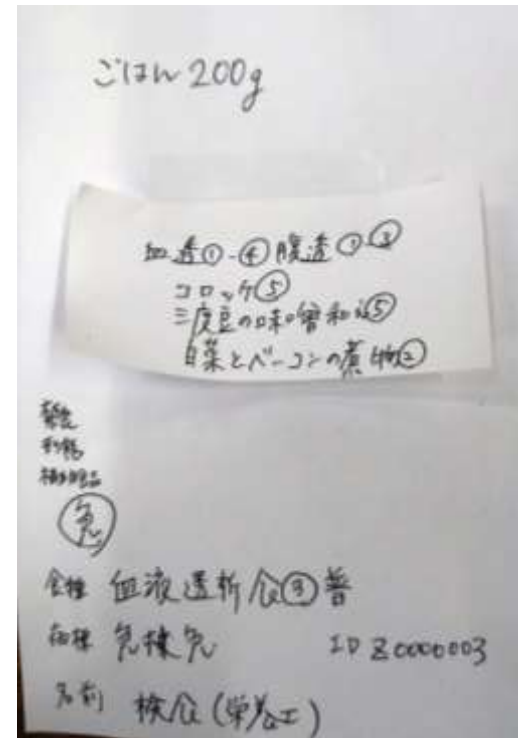 ごはん 200g
血透①-④ 腹透①-③
コロッケ⑤
三度豆の味噌和え⑤
白菜とベーコンの煮物②
禁忌
補助食品
食種 血液透析食③普
ID Z0000003
名前 検食(栄養士)